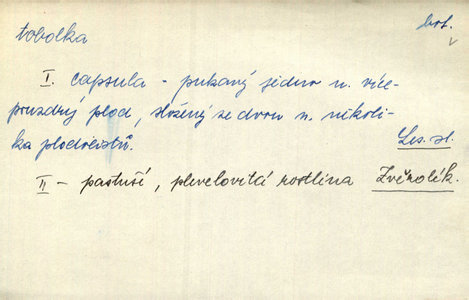 tobolka
bot.
I. capsula - pukavý jedno n. více-
pouzdrý plod, složený ze dvou n. několi-
ka plodolistů.
Les. sl.
II - pastuší, plevelovitá rostlina Zvěrolék.